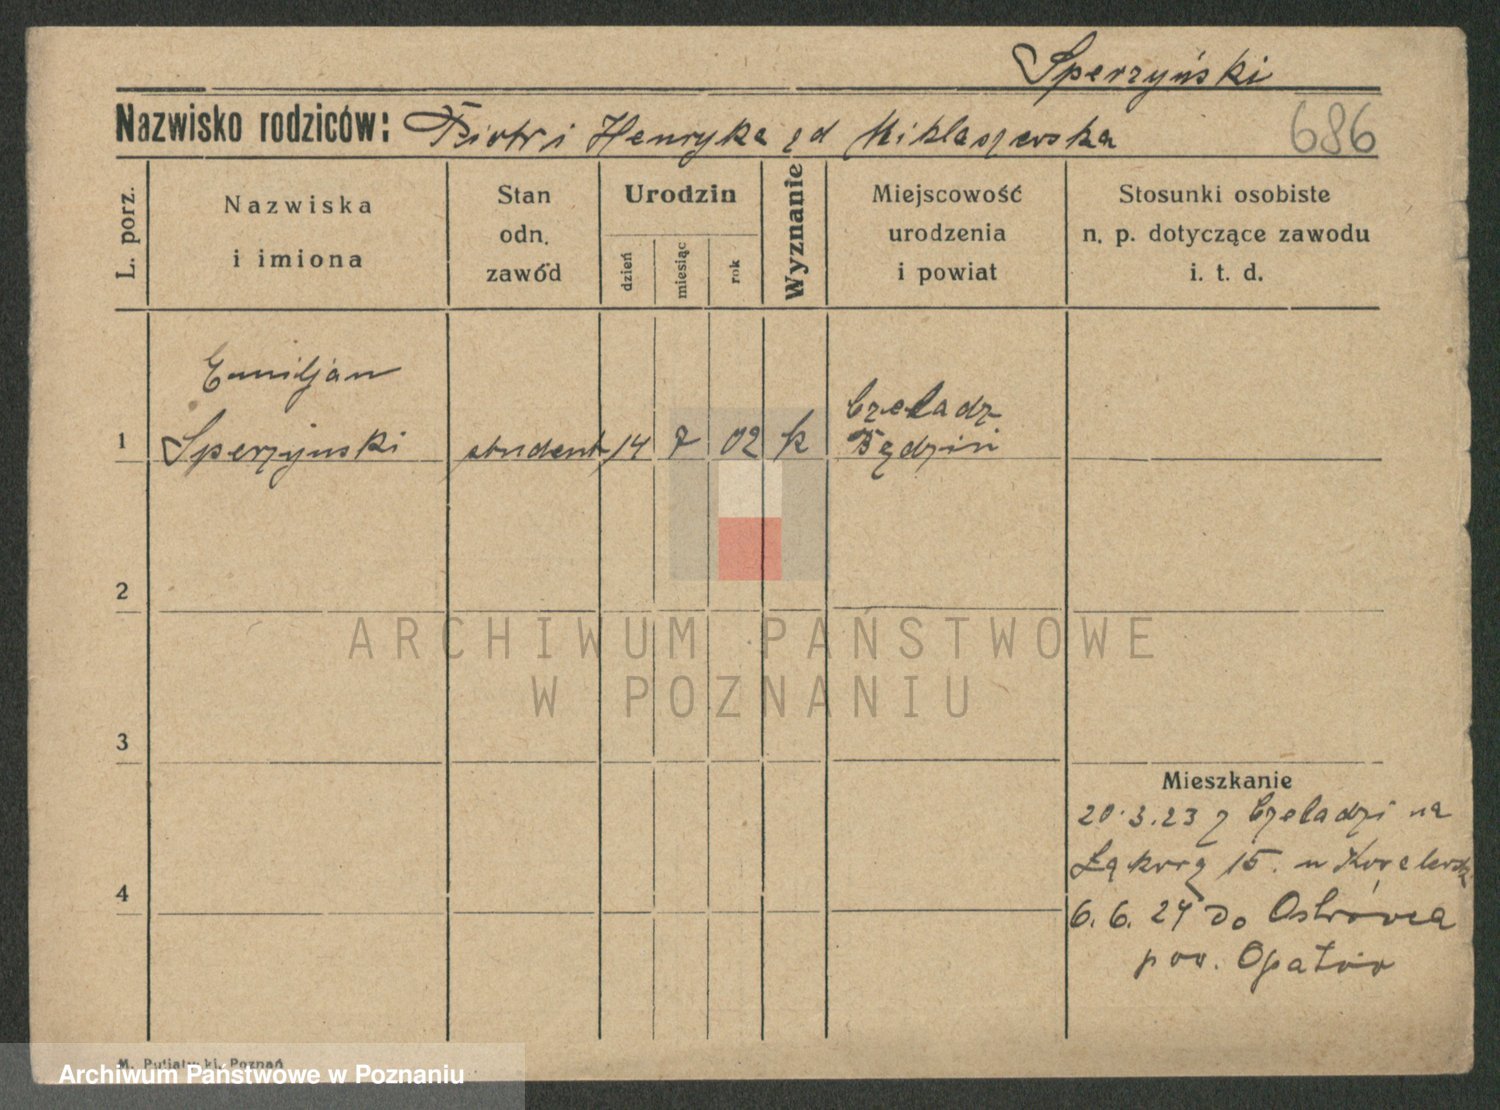 Sperzyński
Nazwisko rodziców: Piotr i Henryka zd Miklaszewska 686
L. porz.
Nazwiska
i imiona
Stan
odn.
zawód
Urodzin
dzień
miesiąc
rok
Wyznanie
Miejscowość
urodzenia
i powiat
Stosunki osobiste
n. p. dotyczące zawodu
i. t. d.
1
Emiljan
Sperzyński
student
14
7
02
k
Czeladz
Będzin
2
3
4
Mieszkanie
20.3.23 z Czeladzi na
Łąkową 15. u
6.6.24 do Ostrówca
pow. Opatów
ARCHIWUM PAŃSTWOWE
W POZNANIU
M. Putiatycki, Poznań
Archiwum Państwowe w Poznaniu